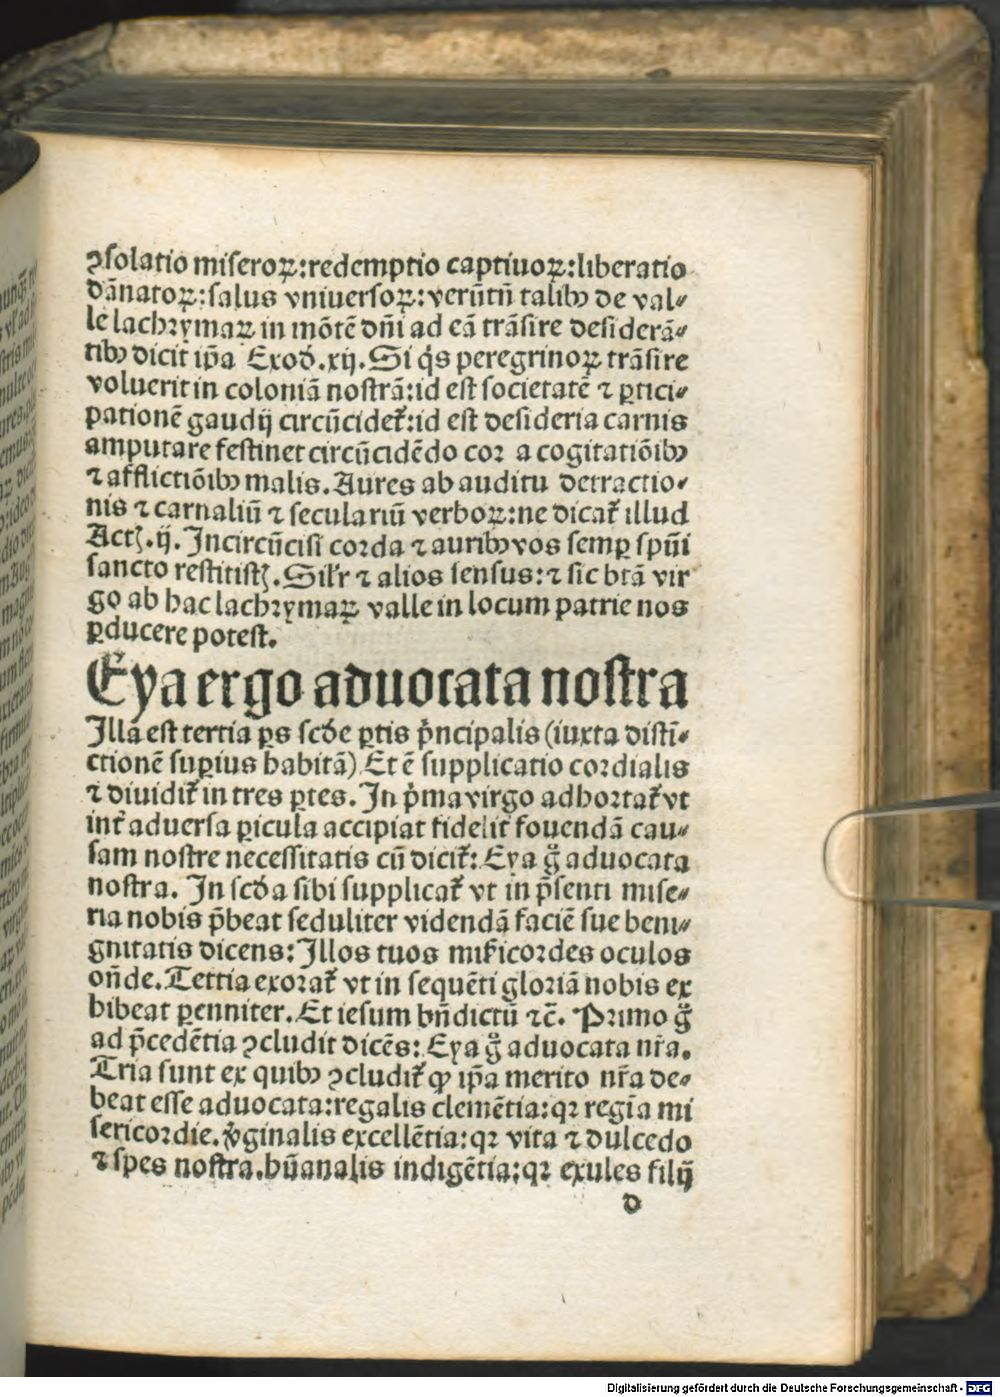 ꝯsolatio miseroꝝ:redemptio captiuoꝝ:liberatio
dānatoꝝ:salus vniuersoꝝ:verūtñ talibꝰ de val⸗
le lachrymaꝝ in mōtē dñi ad eā trāsire desiderā⸗
tibꝰ dicit ip̄a Exod̄.xij.Si q̇s peregrinoꝝ trāsire
voluerit in coloniā nostrā:id est societatē ⁊ ꝑtici⸗
pationē gaudij circūcidet᷑:id est desideria carnis
amputare festinet circūcidēdo cor a cogitatiōibꝰ
⁊ afflictiōibꝰ malis.Aures ab auditu detractio⸗
nis ⁊ carnaliū ⁊ seculariū verboꝝ:ne dicat᷑ illud
Actꝭ.ij.Incircūcisi corda ⁊ auribꝰ vos semꝑ spūi
sancto restitistꝭ.Sil'r ⁊ alios sensus:⁊ sic btā vir
go ab hac lachrymaꝝ valle in locum patrie nos
ꝑducere potest.
Eya ergo aduocata nostra
Illa est tertia ꝑs scd̄e ꝑtis p̓ncipalis (iuxta disti̅⸗
ctionē suꝑius habitā) Et ē supplicatio cordialis
⁊ diuidit᷑ in tres ꝑtes. In p̓ma virgo adhortat᷑ vt
int᷑ aduersa ꝑicula accipiat fidelit᷑ fouendā cau⸗
sam nostre necessitatis cū dicit᷑: Eya g̊ aduocata
nostra. In scd̄a sibi supplicat᷑ vt in p̄senti mise⸗
ria nobis p̄beat seduliter videndā faciē sue beni⸗
gnitatis dicens: Illos tuos mi᷑icordes oculos
oñde.Tertia exorat᷑ vt in sequēti gloriā nobis ex
hibeat ꝑenniter.Et iesum bñdictū ⁊c̄. Primo g̊
ad p̄cedētia ꝯcludit dicēs: Eya g̊ aduocata nr̄a.
Tria sunt ex quibꝰ ꝯcludit᷑ ꝙ ip̄a merito nr̄a de⸗
beat esse aduocata:regalis clemētia:qꝛ regīa mi
sericordie.v̓ginalis excellētia:qꝛ vita ⁊ dulcedo
⁊ spes nostra.hūanalis indigētia:qꝛ exules filij
d
Digitalisierung gefördert durch die Deutsche Forschungsgemeinschaft - DFG